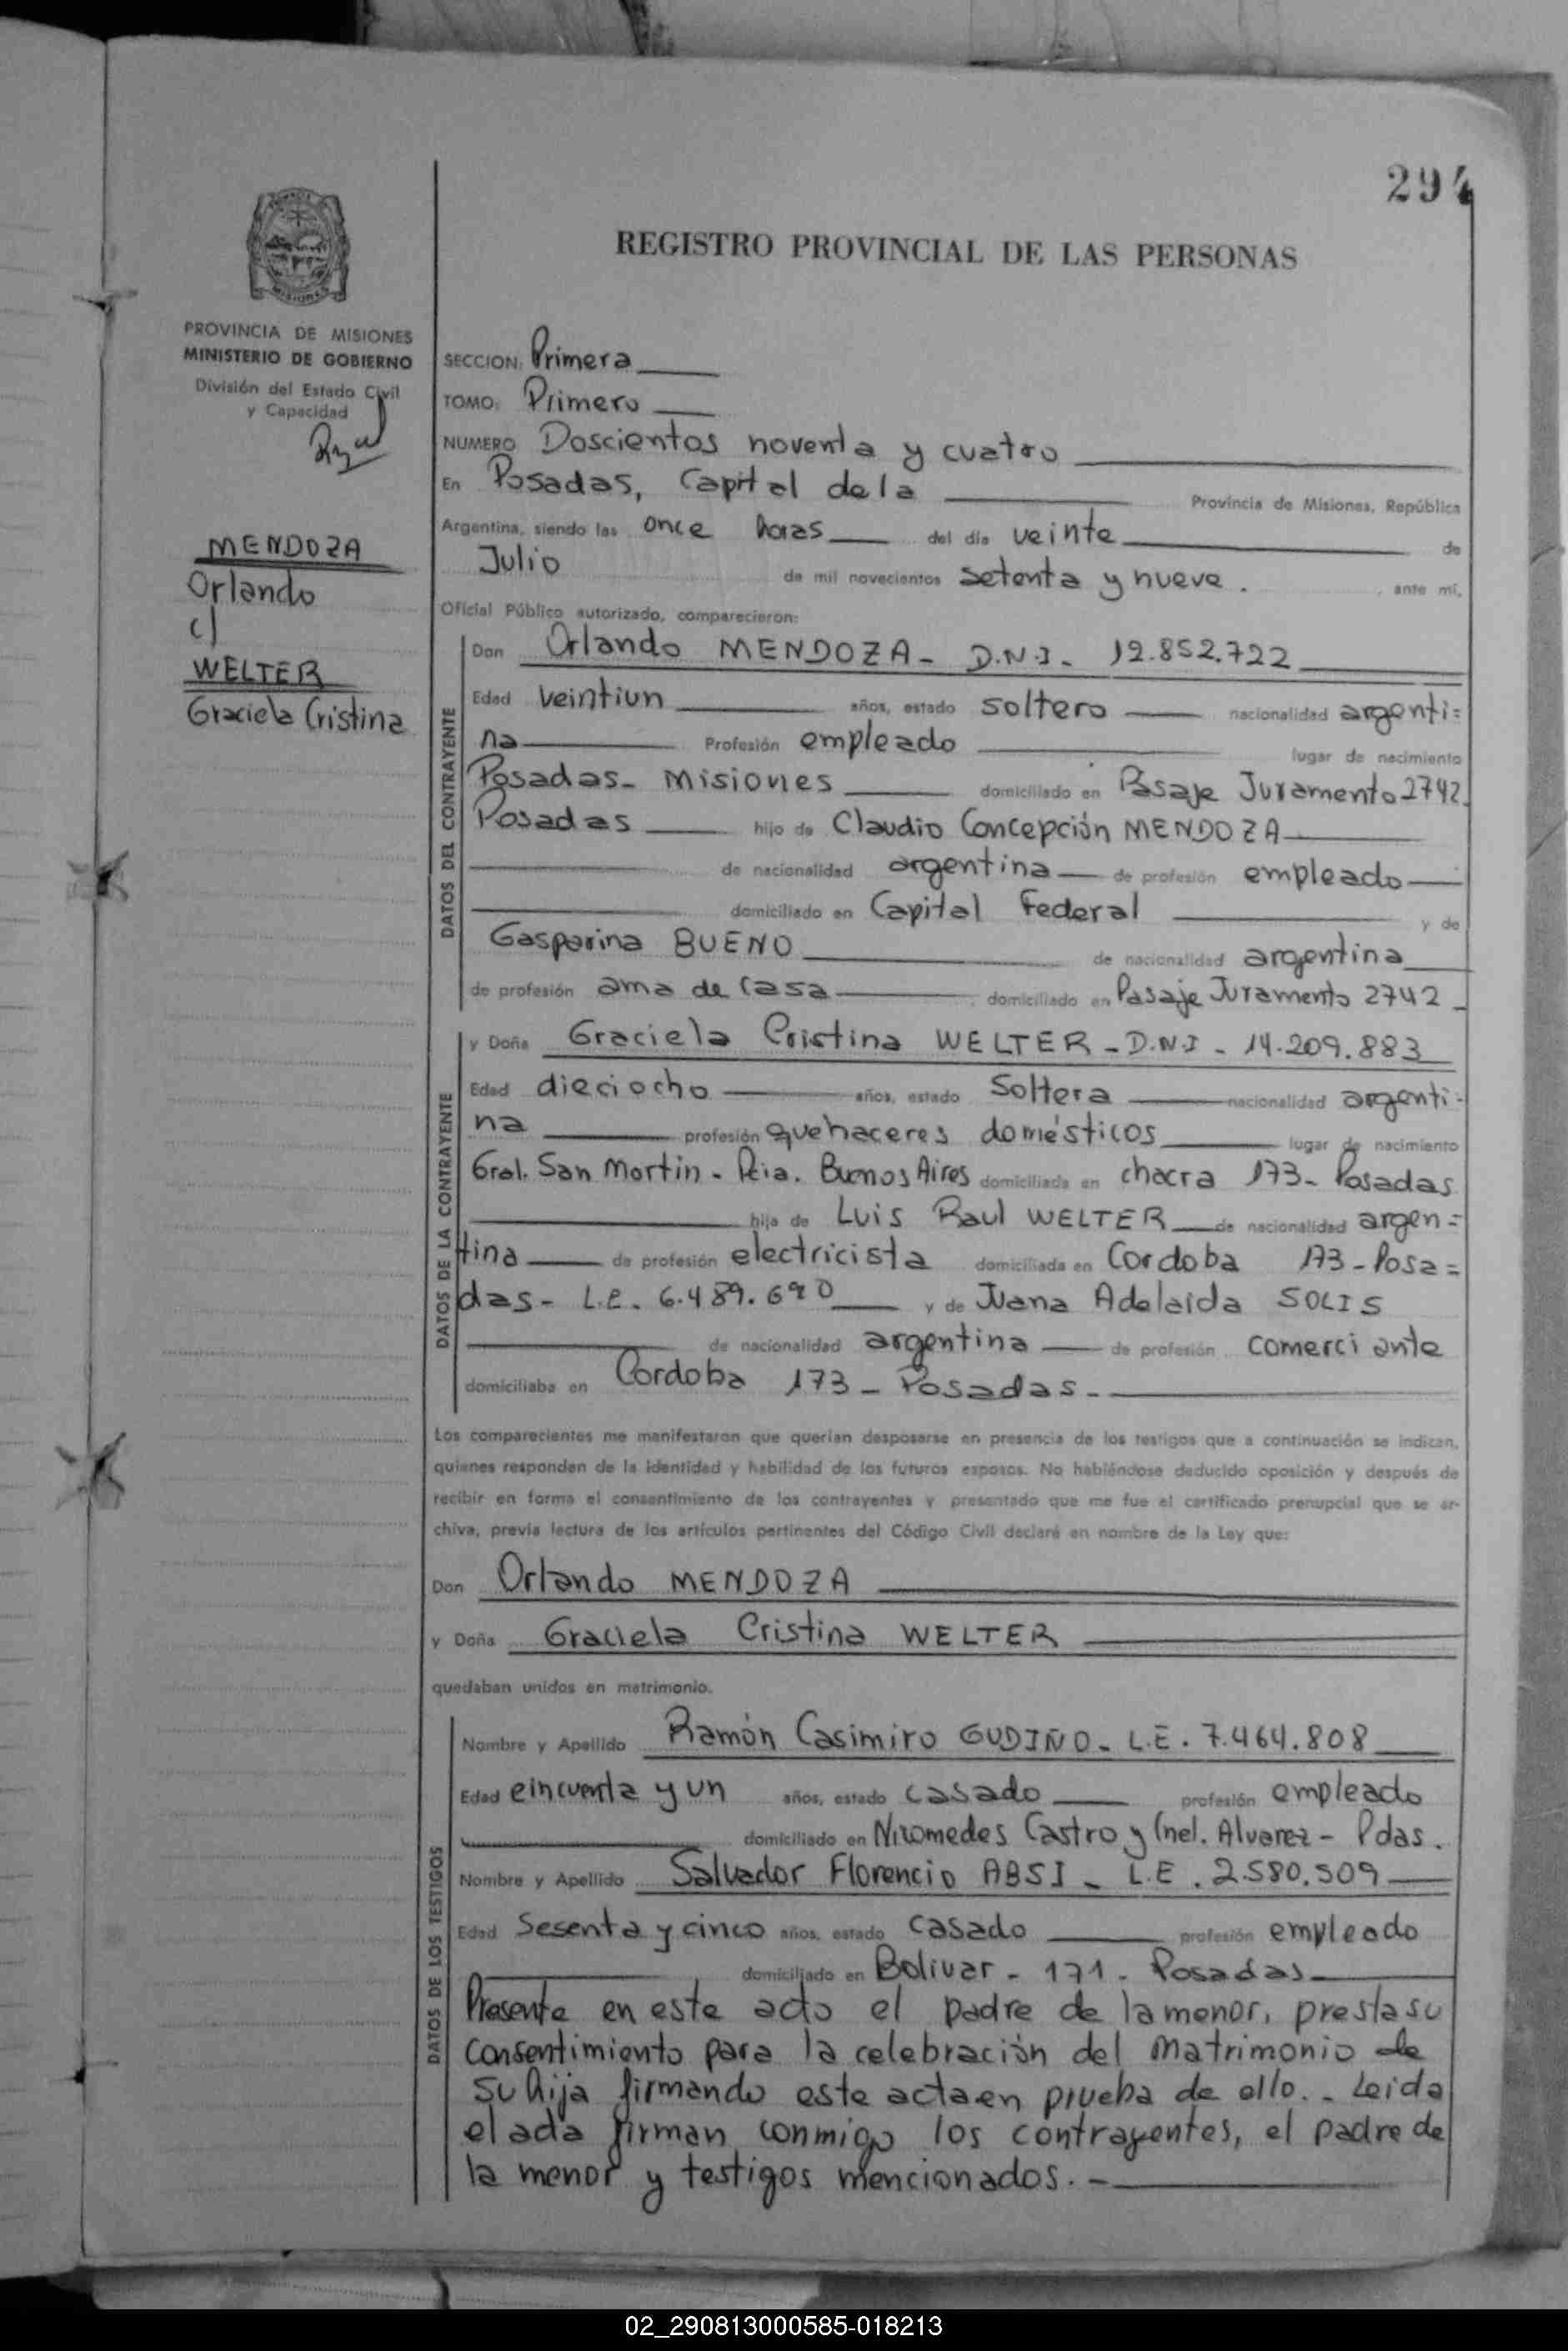 294
REGISTRO PROVINCIAL DE LAS PERSONAS
PROVINCIA DE MISIONES
MINISTERIO DE GOBIERNO
División del Estado Civil
y Capacidad
MENDOZA
Orlando
c/
WELTER
Graciela Cristina
SECCION: Primera
TOMO: Primero
NUMERO Doscientos noventa y cuatro
En Posadas, Capital de la Provincia de Misiones, República
Argentina, siendo las once horas del día veinte de
Julio de mil novecientos setenta y nueve. , ante mí,
Oficial Público autorizado, comparecieron:
DATOS DEL CONTRAYENTE
Don Orlando MENDOZA - D.N.I - 12.852.722
Edad veintiun años, estado soltero nacionalidad argenti=
na Profesión empleado lugar de nacimiento
Posadas - Misiones domiciliado en Pasaje Juramento 2742.
Posadas hijo de Claudio Concepción MENDOZA
de nacionalidad argentina de profesión empleado
domiciliado en Capital Federal y de
Gasparina BUENO de nacionalidad argentina
de profesión ama de casa , domiciliado en Pasaje Juramento 2742 -
DATOS DE LA CONTRAYENTE
y Doña Graciela Cristina WELTER - D.N.I - 14.209.883
Edad dieciocho años, estado Soltera nacionalidad argenti=
na profesión quehaceres domésticos lugar de nacimiento
Gral. San Martín - Pcia. Buenos Aires domiciliada en chacra 173 - Posadas
hija de Luis Raul WELTER de nacionalidad argen=
tina de profesión electricista domiciliada en Cordoba 173 - Posa=
das - L.E. 6.489.690 y de Juana Adelaida SOLIS
de nacionalidad argentina de profesión comerciante
domiciliaba en Cordoba 173 - Posadas -
Los comparecientes me manifestaron que querían desposarse en presencia de los testigos que a continuación se indican,
quienes responden de la identidad y habilidad de los futuros esposos. No habiéndose deducido oposición y después de
recibir en forma el consentimiento de los contrayentes y presentado que me fue el certificado prenupcial que se ar-
chiva, previa lectura de los artículos pertinentes del Código Civil declaré en nombre de la Ley que:
Don Orlando MENDOZA
y Doña Graciela Cristina WELTER
quedaban unidos en matrimonio.
DATOS DE LOS TESTIGOS
Nombre y Apellido Ramón Casimiro GUDIÑO - L.E. 7.464.808
Edad cincuenta y un años, estado casado profesión empleado
domiciliado en Nicomedes Castro y Cnel. Alvarez - Pdas.
Nombre y Apellido Salvador Florencio ABSI - L.E. 2.580.509
Edad Sesenta y cinco años, estado casado profesión empleado
domiciliado en Bolivar - 171 - Posadas
Presente en este acto el padre de la menor, presta su
consentimiento para la celebración del matrimonio de
su hija firmando este acta en prueba de ello. - Leida
el acta firman conmigo los contrayentes, el padre de
la menor y testigos mencionados. -
02_290813000585-018213